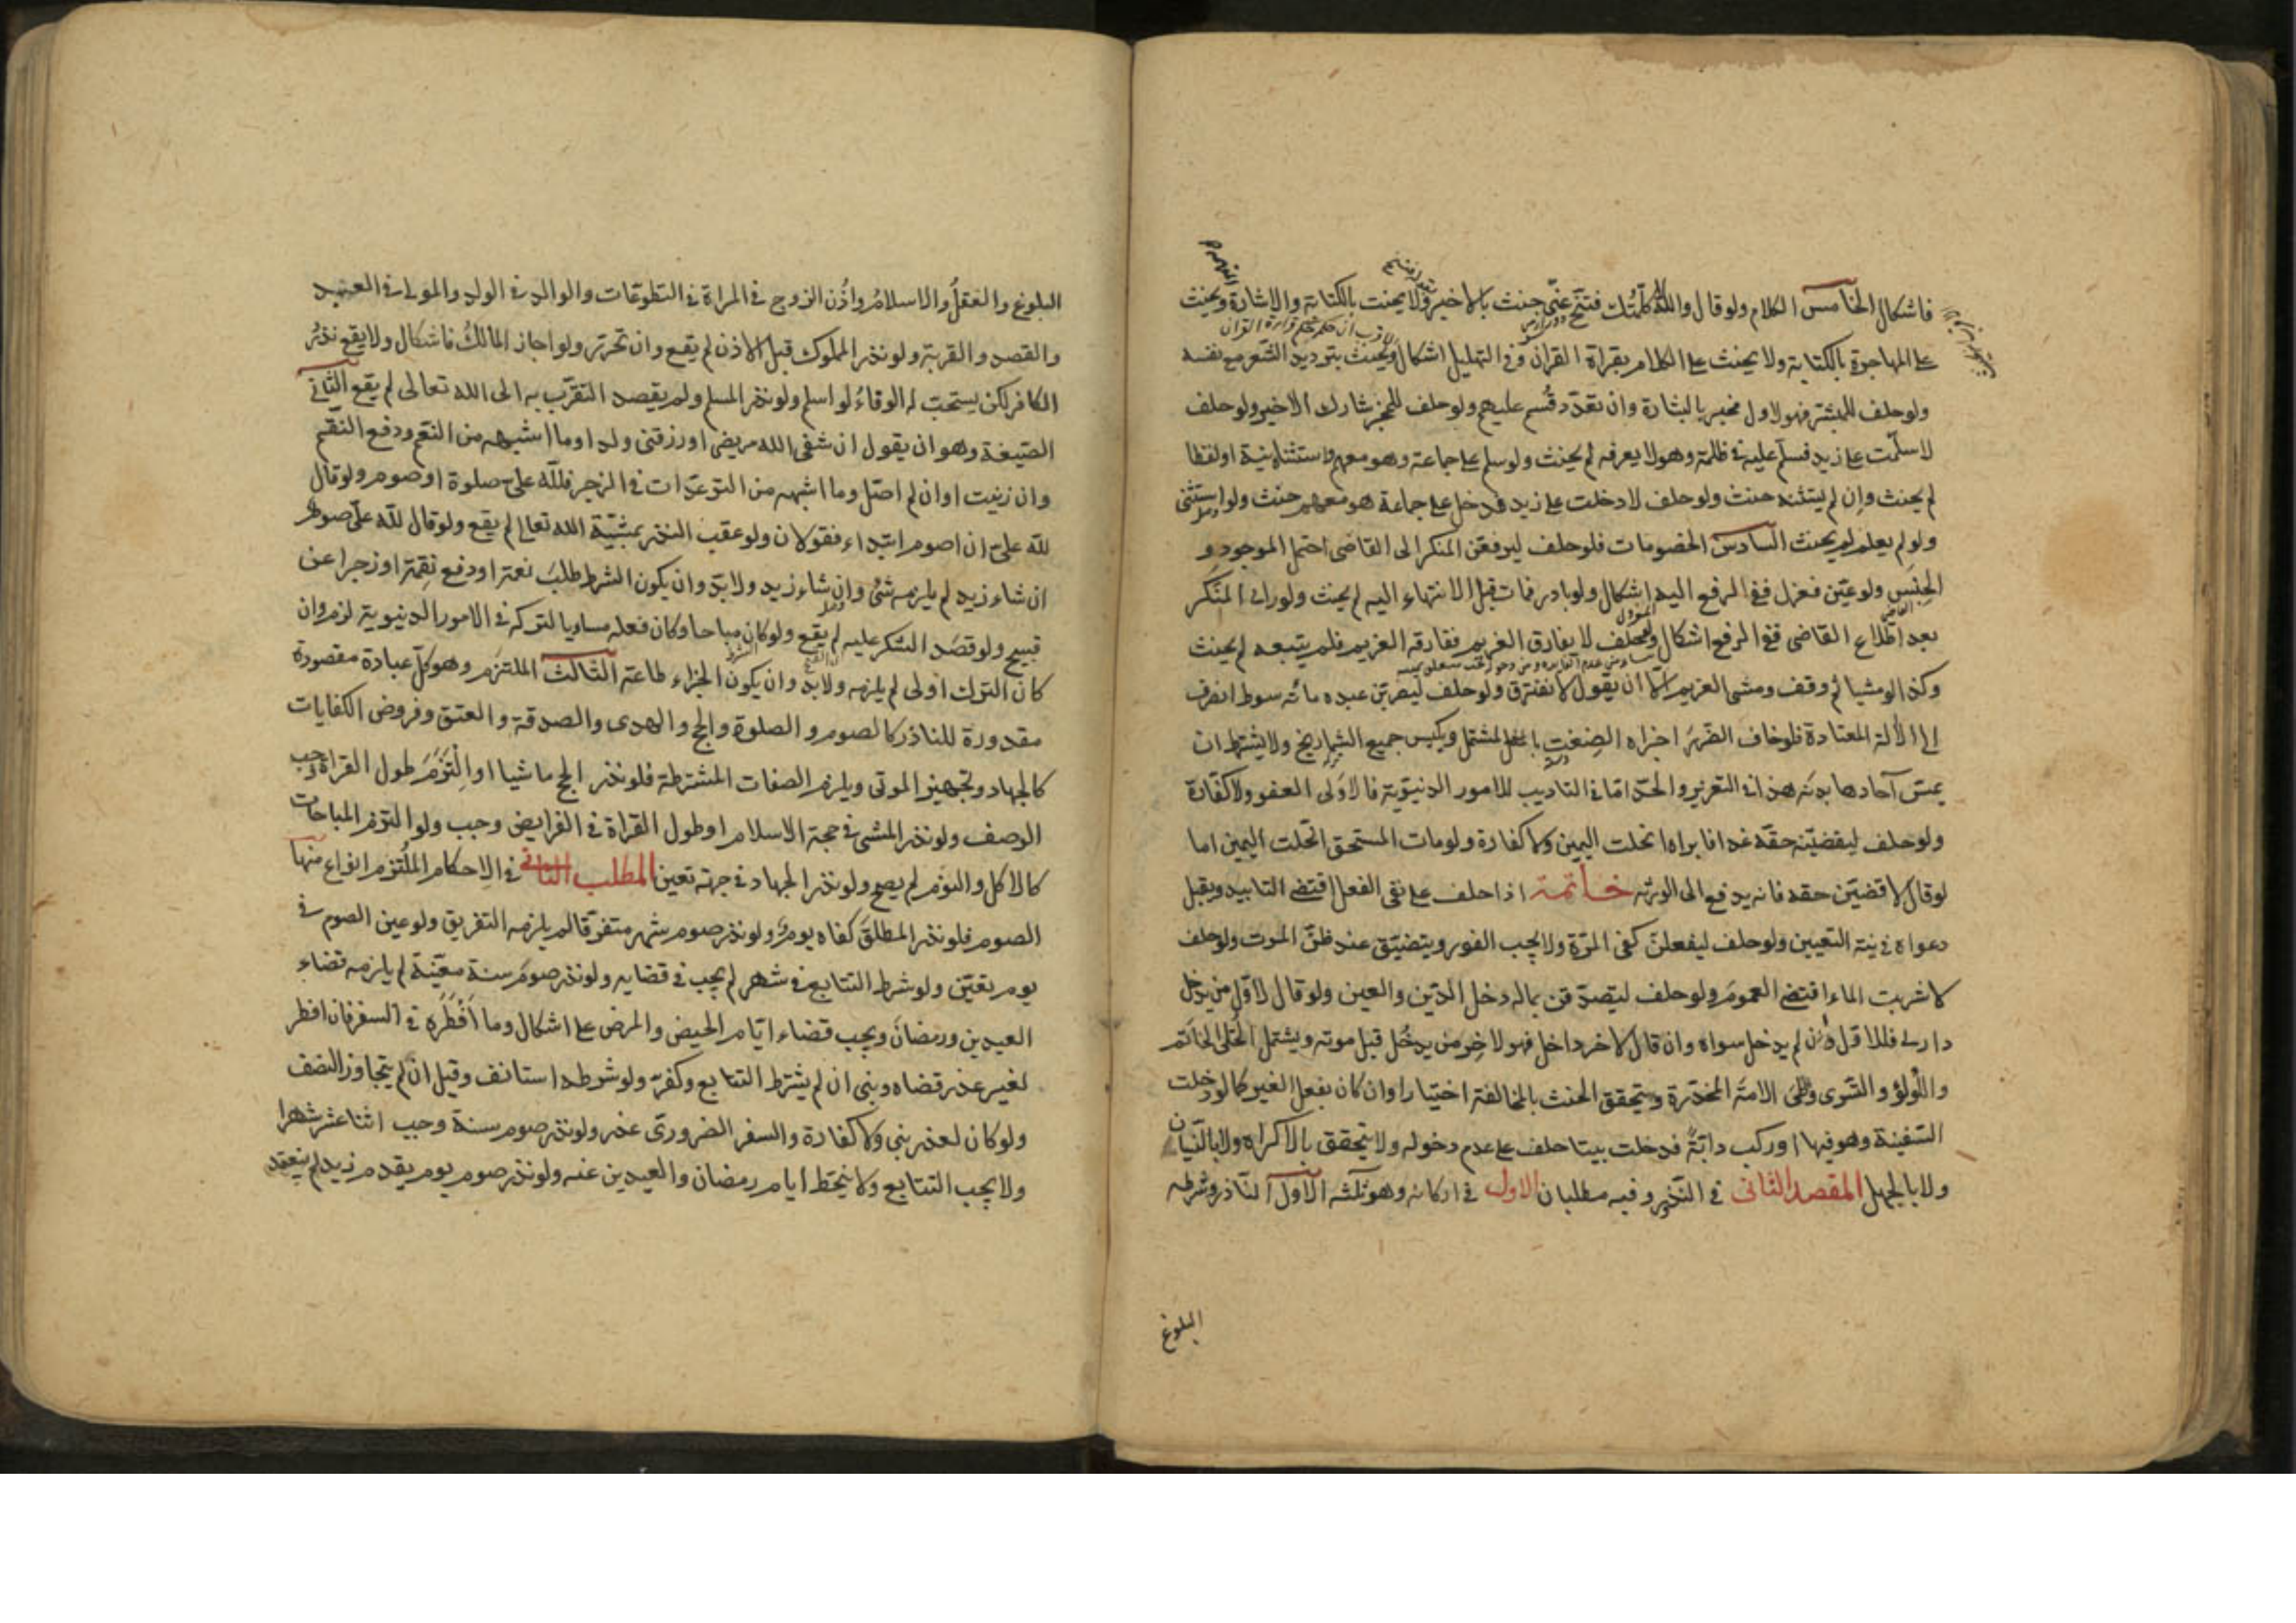 فاشكال الخامس الكلام ولو قال والله لا كلمتك فتنح عني حنث بالاخير ولا يحنث بالكتابة والاشارة ويحنث
على المهاجرة بالكتابة ولا يحنث على الكلام بقراة القران وفي التهليل اشكال ويحنث بترديد الشعر مع نفسه
ولو حلف للمبشر فهو لاول مخبر بالبشارة وان تعدد قسم عليهم ولو حلف للمخبر شارك الاخير ولو حلف
لا سلمت على زيد فسلم عليه في ظلمة وهو لا يعرفه لم يحنث ولو سلم على جماعة وهو معهم واستثناه نية او لفظا
لم يحنث وان لم يستثنه حنث ولو حلف لا دخلت على زيد فدخل على جماعة هو معهم حنث ولو استثنى
ولو لم يعلم لم يحنث السادس الخصومات فلو حلف ليرفعن المنكر الى القاضي احتمل الموجود و
الجنس ولو عين فعزل ففي الرفع اليه اشكال ولو بادر فمات قبل الانتهاء اليه لم يحنث ولو راى المنكر
بعد اطلاع القاضي ففي الرفع اشكال ولو حلف لا يفارق الغريم ففارقه الغريم فلم يتبعه لم يحنث
وكذا لو مشيا ثم وقف ومشى الغريم الا ان يقول لا نفترق ولو حلف ليضربن عبده مائة سوط انصرف
الى الالة المعتادة فلو خاف الضرر اجزاه الضغث المشتمل ويكبس جميع الشماريخ ولا يشترط ان
يمس آحادها بدنه هذا في التعزير والحد اما في التاديب للامور الدنيوية فالاولى العفو ولا كفارة
ولو حلف ليقضينه حقه غدا فابراه انحلت اليمين ولا كفارة ولو مات المستحق انحلت اليمين اما
لو قال لاقضين حقه فانه يدفع الى الورثه خاتمة اذا حلف على نفي الفعل اقتضى التابيد ويقبل
دعواه في نية التعيين ولو حلف ليفعلن كفى المرة ولا يجب الفور ويتضيق عند ظن الموت ولو حلف
لا شربت الماء اقتضى العموم ولو حلف ليتصدقن بماله دخل الدين والعين ولو قال لاول من يدخل
داري فللاول وان لم يدخل سواه وان قال لاخر داخل فهو لاخر من يدخل قبل موته ويشتمل الحلى الخاتم
واللؤلؤ والتسرى وطى الامة المخدرة ويتحقق الحنث بالمخالفة اختيارا وان كان بفعل الغير كما لو دخلت
السفينة وهو فيها او ركب دابة فدخلت بيتا حلف على عدم دخوله ولا يتحقق بالاكراه ولا بالنسيان
ولا بالجهل المقصد الثاني في النذر وفيه مطلبان الاول في اركانه وهو ثلثه الاول الناذر وشرطه
البلوغ
البلوغ والعقل والاسلام واذن الزوج في المراة في التطوعات والوالد في الولد والمولى في العبد
والقصد والقربة ولو نذر المملوك قبل الاذن لم يقع وان تحرر ولو اجاز المالك فاشكال ولا يقع نذر
الكافر لكن يستحب له الوفاء لو اسلم ولو نذر المسلم ولم يقصد التقرب به الى الله تعالى لم يقع الثاني
الصيغة وهو ان يقول ان شفى الله مريضي او رزقني ولدا وما اشبهه من النعم ودفع النقم
وان زنيت او ان لم اصل وما اشبهه من التوعدات في الزجر فلله علي صلوة او صوم ولو قال
لله علي ان اصوم ابتداء فقولان ولو عقب النذر بمشية الله تعالى لم يقع ولو قال لله علي صوم
ان شاء زيد لم يلزمه شئ وان شاء زيد ولا بد وان يكون الشرط طلب نعمة او دفع نقمة او زجرا عن
قبيح ولو قصد الشكر عليه لم يقع ولو كان مباحا وكان فعله مساويا لتركه في الامور الدنيوية لزم وان
كان الترك اولى لم يلزمه ولا بد وان يكون الجزاء طاعة الثالث الملتزم وهو كل عبادة مقصودة
مقدورة للناذر كالصوم والصلوة والحج والهدى والصدقة والعتق وفروض الكفايات
كالجهاد وتجهيز الموتى ويلزم الصفات المشترطة فلو نذر الحج ماشيا او التزم طول القراة وجب
الوصف ولو نذر المشى في حجة الاسلام او طول القراة في الفرايض وجب ولو التزم المباحات
كالاكل والنوم لم يصح ولو نذر الجهاد في جهة تعين المطلب الثاني في الاحكام الملتزم انواع منها
الصوم فلو نذر المطلق كفاه يوم ولو نذر صوم شهر متفرقا لم يلزمه التفريق ولو عين الصوم في
يوم تعين ولو شرط التتابع في شهر لم يجب في قضايه ولو نذر صوم سنة معينة لم يلزمه قضاء
العيدين ورمضان ويجب قضاء ايام الحيض والمرض على اشكال وما افطره في السفر فان افطر
لغير عذر قضاه وبنى ان لم يشترط التتابع وكفر ولو شرطه استانف وقيل ان لم يتجاوز النصف
ولو كان لعذر بنى ولا كفارة والسفر الضروري عذر ولو نذر صوم سنة وجب اثنا عشر شهرا
ولا يجب التتابع ولا ينحط ايام رمضان والعيدين عنه ولو نذر صوم يوم يقدم زيد لم ينعقد